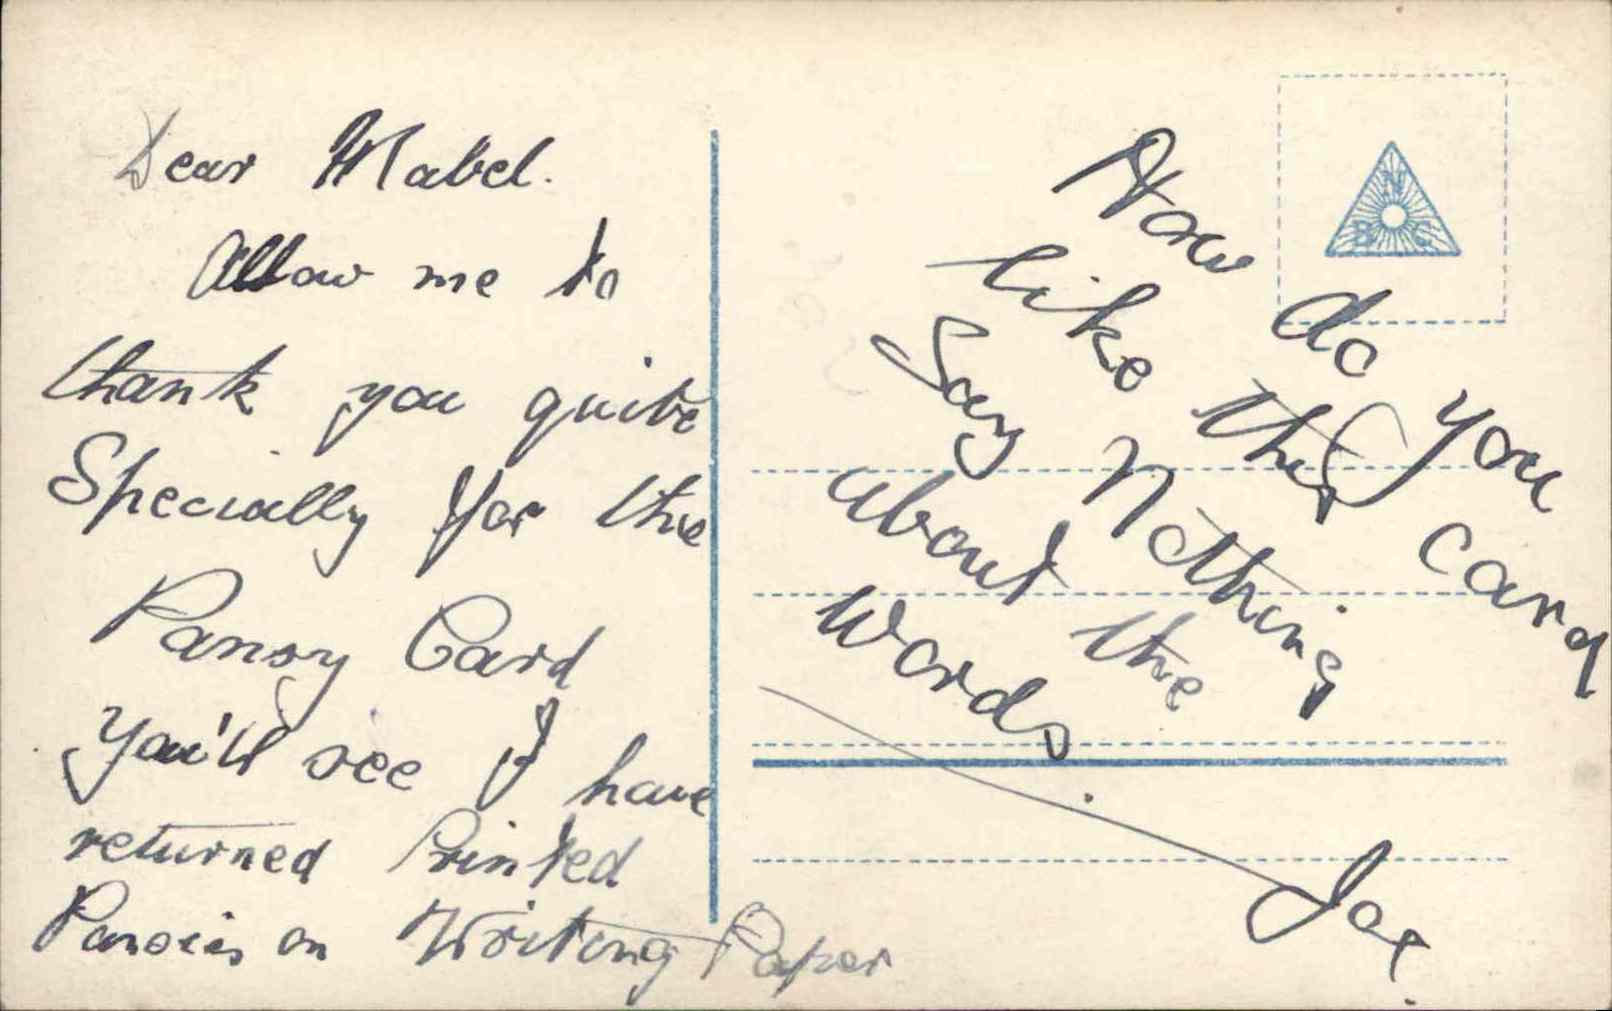 Dear Mabel.
Allow me to
thank you quite
Specially for the
Pansy Card
You'll see I have
returned Printed
Pansies on Writing Paper
How do you
like this card
Say Nothing
about the
Words
Joe.
N
B C